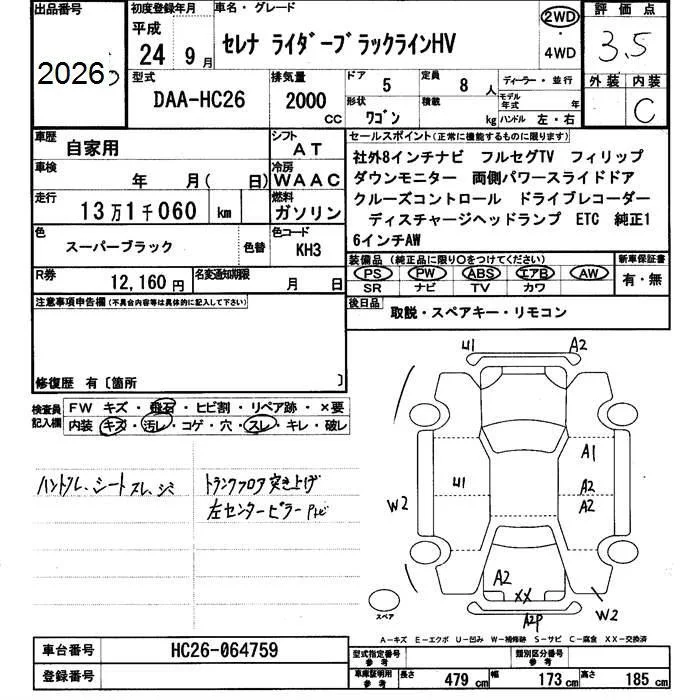 出品番号
20263
初度登録年月
平成
24 9月
車名・グレード
セレナ ライダーブラックラインHV
2WD
・
4WD
評価点
3.5
外装 内装
C
型式
DAA-HC26
排気量
2000
CC
ドア
5
定員
8人
形状
ワゴン
積載
kg
ディーラー・並行
モデル年式 年
ハンドル 左・右
車歴
自家用
シフト
AT
車検
年 月( 日)
冷房
WAAC
走行
13万1千060 km
燃料
ガソリン
色
スーパーブラック
色替
色コード
KH3
R券
12,160円
名変通知期限
月 日
セールスポイント(正常に機能するものに限ります)
社外8インチナビ フルセグTV フィリップ
ダウンモニター 両側パワースライドドア
クルーズコントロール ドライブレコーダー
ディスチャージヘッドランプ ETC 純正1
6インチAW
装備品(純正品に限り○をつけてください)
PS PW ABS エアB AW
SR ナビ TV カワ
新車保証書
有・無
後日品
取説・スペアキー・リモコン
注意事項申告欄(不具合内容等は具体的に記入して下さい)
修復歴 有〔箇所 〕
検査員記入欄
FW キズ・飛石・ヒビ割・リペア跡・×要
内装 キズ・汚レ・コゲ・穴・スレ・キレ・破レ
ハンドル、シートスレ、シミ
トランクフロア突き上げ
左センターピラー
U1 A2
A1
U1 A2
A2
W2
A2
XX
W2
A2P
スペア
A-キズ E-エクボ U-凹み W-補修跡 S-サビ C-腐食 XX-交換済
車台番号
HC26-064759
登録番号
型式指定番号
参考
類別区分番号
参考
車庫証明用
参考
長さ 479 cm 幅 173 cm 高さ 185 cm